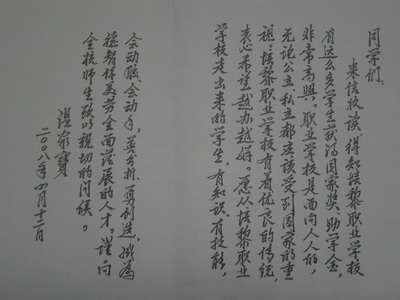 同学们：
来信收读，得知培黎职业学校
有这么多学生获得国家奖、助学金，
非常高兴。职业学校是面向人人的，
无论公立、私立都应该受到国家的重
视。培黎职业学校有着优良的传统，
衷心希望越办越好。愿从培黎职业
学校走出来的学生，有知识、有技能，
会动脑、会动手，善分析、勇创造，成为
德智体美劳全面发展的人才。谨向
全校师生致以亲切的问候。
温家宝
二〇〇八年四月十二日